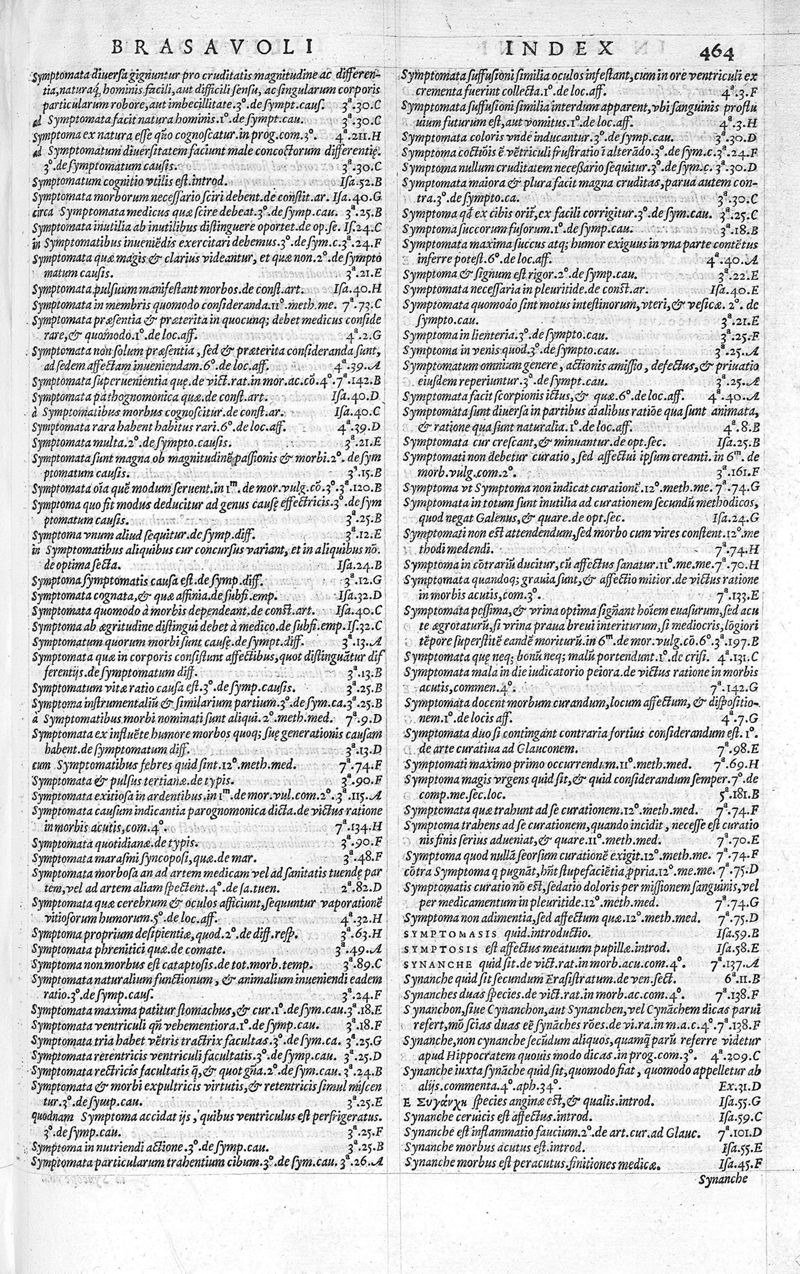 BRASAVOLI
Symptomata diuersa gignuntur pro cruditatis magnitudine ac differen-
tia, naturaq; hominis facili, aut difficili sensu, ac singularum corporis
particularum robore, aut imbecillitate. 3°. de sympt. caus. 3ª.30.C
ad Symptomata facit natura hominis. 1°. de sympt. cau. 3ª.30.C
Symptoma ex natura esse quõ cognoscatur. in prog. com. 3°. 4ª.211.H
ad Symptomatum diuersitatem faciunt male concoctorum differentię.
3°. de symptomatum causis. 3ª.30.C
Symptomatum cognitio vtilis est. introd. Isa.52.B
Symptomata morborum necessario sciri debent. de constit. ar. Isa.40.G
circa Symptomata medicus quæ scire debeat. 3°. de symp. cau. 3ª.25.B
Symptomata inutilia ab inutilibus distinguere oportet. de op. se. Is.24.C
in Symptomatibus inueniẽdis exercitari debemus. 3°. de sym. c. 3ª.24.F
Symptomata quæ magis & clarius videantur, et quæ non. 2°. de sympto
matum causis. 3ª.21.E
Symptomata pulsuum manifestant morbos. de const. art. Isa.40.H
Symptomata in membris quomodo consideranda. 11°. meth. me. 7ª.73.C
Symptomata præsentia & præterita in quocunq; debet medicus conside
rare, & quomodo. 1°. de loc. aff. 4ª.2.G
Symptomata non solum præsentia, sed & præterita consideranda sunt,
ad sedem affectam inueniendam. 6°. de loc. aff. 4ª.39.A
Symptomata superuenientia que. de vict. rat. in mor. ac. cõ. 4°. 7ª.142.B
Symptomata pathognomonica quæ. de const. art. Isa.40.D
à Symptomatibus morbus cognoscitur. de const. ar. Isa.40.C
Symptomata rara habent habitus rari. 6°. de loc. aff. 4ª.39.D
Symptomata multa. 2°. de sympto. causis. 3ª.21.E
Symptomata sunt magna ob magnitudinẽ passionis & morbi. 2°. de sym
ptomatum causis. 3ª.15.B
Symptomata oĩa quẽ modum seruent. in 1ᵐ. de mor. vulg. cõ. 3°. 3ª.120.B
Symptoma quo fit modus deducitur ad genus causę effectricis. 3°. de sym
ptomatum causis. 3ª.25.B
Symptoma vnum aliud sequitur. de symp. diff. 3ª.12.E
in Symptomatibus aliquibus cur concursus variant, et in aliquibus nõ.
de optima secta. Isa.24.B
Symptoma symptomatis causa est. de symp. diff. 3ª.12.G
Symptomata cognata, & quæ affinia. de subfi. emp. Isa.32.D
Symptomata quomodo à morbis dependeant. de const. art. Isa.40.C
Symptoma ab ægritudine distingui debet à medico. de subfi. emp. Is.32.C
Symptomatum quorum morbi sunt causę. de sympt. diff. 3ª.13.A
Symptomata quæ in corporis consistunt affectibus, quot distinguãtur dif
ferentijs. de symptomatum diff. 3ª.13.B
Symptomatum vitæ ratio causa est. 3°. de symp. causis. 3ª.25.B
Symptoma instrumentaliũ & similarium partium. 3°. de sym. ca. 3ª.25.B
à Symptomatibus morbi nominati sunt aliqui. 2°. meth. med. 7ª.9.D
Symptomata ex influẽte humore morbos quoq; suę generationis causam
habent. de symptomatum diff. 3ª.13.D
cum Symptomatibus febres quid sint. 12°. meth. med. 7ª.74.F
Symptomata & pulsus tertianæ. de typis. 3ª.90.F
Symptomata exitiosa in ardentibus. in 1ᵐ. de mor. vul. com. 2°. 3ª.115.A
Symptomata causam indicantia parognomonica dicta. de victus ratione
in morbis acutis, com. 4°. 7ª.134.H
Symptomata quotidianæ. de typis. 3ª.90.F
Symptomata marasmi syncoposi, quæ. de mar. 3ª.48.F
Symptomata morbosa an ad artem medicam vel ad sanitatis tuendę par
tem, vel ad artem aliam spectent. 4°. de sa. tuen. 2ª.82.D
Symptomata quæ cerebrum & oculos afficiunt, sequuntur vaporationẽ
vitiosorum humorum. 3°. de loc. aff. 4ª.32.H
Symptoma proprium desipientiæ, quod. 2°. de diff. resp. 3ª.63.H
Symptomata phrenitici quæ. de comate. 3ª.49.A
Symptoma non morbus est cataptosis. de tot. morb. temp. 3ª.89.C
Symptomata naturalium functionum, & animalium inueniendi eadem
ratio. 3°. de symp. caus. 3ª.24.F
Symptomata maxima patitur stomachus, & cur. 1°. de sym. cau. 3ª.18.E
Symptomata ventriculi qñ vehementiora. 1°. de symp. cau. 3ª.18.F
Symptomata tria habet vẽtris tractrix facultas. 3°. de sym. ca. 3ª.25.G
Symptomata retentricis ventriculi facultatis. 3°. de symp. cau. 3ª.25.D
Symptomata rectricis facultatis q̃, & quot gña. 2°. de sym. cau. 3ª.24.B
Symptomata & morbi expultricis virtutis, & retentricis simul miscen
tur. 3°. de symp. cau. 3ª.25.E
quodnam Symptoma accidat ijs, quibus ventriculus est perfrigeratus.
3°. de symp. cau. 3ª.25.F
Symptoma in nutriendi actione. 3°. de symp. cau. 3ª.25.B
Symptomata particularum trahentium cibum. 3°. de sym. cau. 3ª.26.A
INDEX 464
Symptomata suffusioni similia oculos infestant, cum in ore ventriculi ex
crementa fuerint collecta. 1°. de loc. aff. 4ª.3.F
Symptomata suffusioni similia interdum apparent, vbi sanguinis proflu
uium futurum est, aut vomitus. 1°. de loc. aff. 4ª.3.H
Symptomata coloris vnde inducantur. 3°. de symp. cau. 3ª.30.D
Symptoma coctiõis ẽ vẽtriculi frustratio ĩ alterãdo. 3°. de sym. c. 3ª.24.F
Symptoma nullum cruditatem necessario sequitur. 3°. de sym. c. 3ª.30.D
Symptomata maiora & plura facit magna cruditas, parua autem con-
tra. 3°. de sympto. ca. 3ª.30.C
Symptoma qđ ex cibis orif, ex facili corrigitur. 3°. de sym. cau. 3ª.25.C
Symptoma succorum fusorum. 1°. de symp. cau. 3ª.18.B
Symptomata maxima succus atq; humor exiguus in vna parte contẽtus
inferre potest. 6°. de loc. aff. 4ª.40.A
Symptoma & signum est rigor. 2°. de symp. cau. 3ª.22.E
Symptomata necessaria in pleuritide. de const. ar. Isa.40.E
Symptomata quomodo sint motus intestinorum, vteri, & vesicæ. 2°. de
sympto. cau. 3ª.21.E
Symptoma in lienteria. 3°. de sympto. cau. 3ª.25.F
Symptoma in venis quod. 3°. de sympto. cau. 3ª.25.A
Symptomatum omnium genere, actionis amissio, defectus, & priuatio
eiusdem reperiuntur. 3°. de sympt. cau. 3ª.25.A
Symptomata facit scorpionis ictus, & quæ. 6°. de loc. aff. 4ª.40.A
Symptomata sunt diuersa in partibus aĩalibus ratiõe qua sunt animata,
& ratione qua sunt naturalia. 1°. de loc. aff. 4ª.8.B
Symptomata cur crescant, & minuantur. de opt. sec. Isa.25.B
Symptomati non debetur curatio, sed affectui ipsum creanti. in 6ᵐ. de
morb. vulg. com. 2°. 3ª.161.F
Symptoma vt Symptoma non indicat curationẽ. 12°. meth. me. 7ª.74.G
Symptomata in totum sunt inutilia ad curationem secundũ methodicos,
quod negat Galenus, & quare. de opt. sec. Isa.24.G
Symptomati non est attendendum, sed morbo cum vires constent. 12°. me
thodi medendi. 7ª.74.H
Symptoma in cõtrariũ ducitur, cũ affectus sanatur. 11°. me. me. 7ª.70.H
Symptomata quandoq; grauia sunt, & affectio mitior. de victus ratione
in morbis acutis, com. 3°. 7ª.133.E
Symptomata pessima, & vrina optima signãt hoĩem euasurum, sed acu
te ægrotaturũ, si vrina praua breui interiturum, si mediocris, lõgiori
tẽpore superstitẽ eandẽ moriturũ. in 6ᵐ. de mor. vulg. cõ. 6°. 3ª.197.B
Symptomata quę neq; bonũ neq; malũ portendunt. 1°. de crisi. 4ª.131.C
Symptomata mala in die iudicatorio peiora. de victus ratione in morbis
acutis, commen. 4°. 7ª.142.G
Symptomata docent morbum curandum, locum affectum, & dispositio-
nem. 1°. de locis aff. 4ª.7.G
Symptomata duo si contingant contraria fortius considerandum est. 1°.
de arte curatiua ad Glauconem. 7ª.98.E
Symptomati maximo primo occurrendum. 11°. meth. med. 7ª.69.H
Symptoma magis vrgens quid sit, & quid considerandum semper. 7°. de
comp. me. sec. loc. 5ª.181.B
Symptomata quæ trahunt ad se curationem. 12°. meth. med. 7ª.74.F
Symptoma trahens ad se curationem, quando incidit, necesse est curatio
nis finis serius adueniat, & quare. 11°. meth. med. 7ª.70.E
Symptoma quod nullã seorsum curationẽ exigit. 12°. meth. me. 7ª.74.F
cõtra Symptoma q pugnãt, hñt stupefaciẽtia ꝓpria. 12°. me. me. 7ª.75.D
Symptomatis curatio nõ est, sedatio doloris per missionem sanguinis, vel
per medicamentum in pleuritide. 12°. meth. med. 7ª.74.G
Symptoma non adimentia, sed affectum quæ. 12°. meth. med. 7ª.75.D
SYMPTOMASIS quid. introductio. Isa.59.B
SYMPTOSIS est affectus meatuum pupillæ. introd. Isa.58.E
SYNANCHE quid sit. de vict. rat. in morb. acu. com. 4°. 7ª.137.A
Synanche quid sit secundum Erasistratum. de ven. sect. 6ª.11.B
Synanches duas species. de vict. rat. in morb. ac. com. 4°. 7ª.138.F
Synanchon, siue Cynanchon, aut Synanchen, vel Cynãchem dicas parui
refert, mõ scias duas eẽ synãches rões. de vi. ra. in m. a. c. 4°. 7ª.138.F
Synanche, non cynanche secũdum aliquos, quamq̃ parũ referre videtur
apud Hippocratem quouis modo dicas. in prog. com. 3°. 4ª.209.C
Synanche iuxta synãche quid sit, quomodo fiat, quomodo appelletur ab
alijs. commenta. 4°. aph. 34°. Ex.31.D
E Συνάγχη species anginæ est, & qualis. introd. Isa.55.G
Synanche ceruicis est affectus. introd. Isa.59.C
Synanche est inflammatio faucium. 2°. de art. cur. ad Glauc. 7ª.101.D
Synanche morbus acutus est. introd. Isa.55.E
Synanche morbus est peracutus. finitiones medicæ. Isa.45.F
Synanche